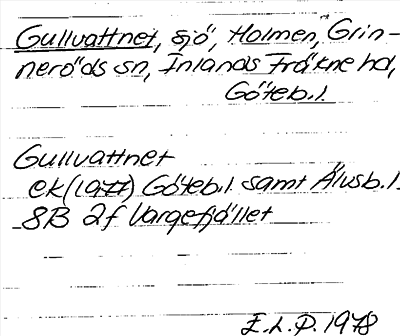 Gullvattnet, sjö, Holmen, Grin-
neröds sn, Inlands Fräkne hd,
Göteb.l.
Gullvattnet
ek (1977) Göteb.l. samt Älvsb.l.
8B 2f Vargefjället
E.L.P. 1978